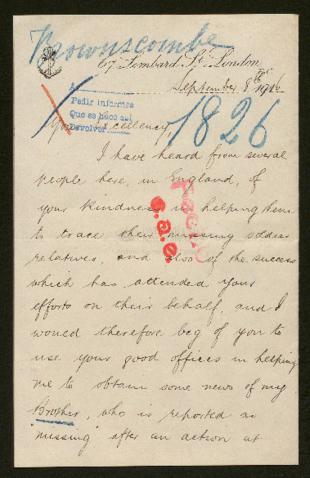 Brownscombe
67 Lombard St, London
September 8th 1916
A
Pedir informes
Que se haga así
Devolver
1826
Your Excellency,
I have heard from several
people here, in England, of
your kindness in helping them
to trace their missing soldier
relatives, and also of the success
which has attended your
efforts on their behalf, and I
would therefore beg of you to
use your good offices in helping
me to obtain some news of my
Brother, who is reported as
"missing" after an action at